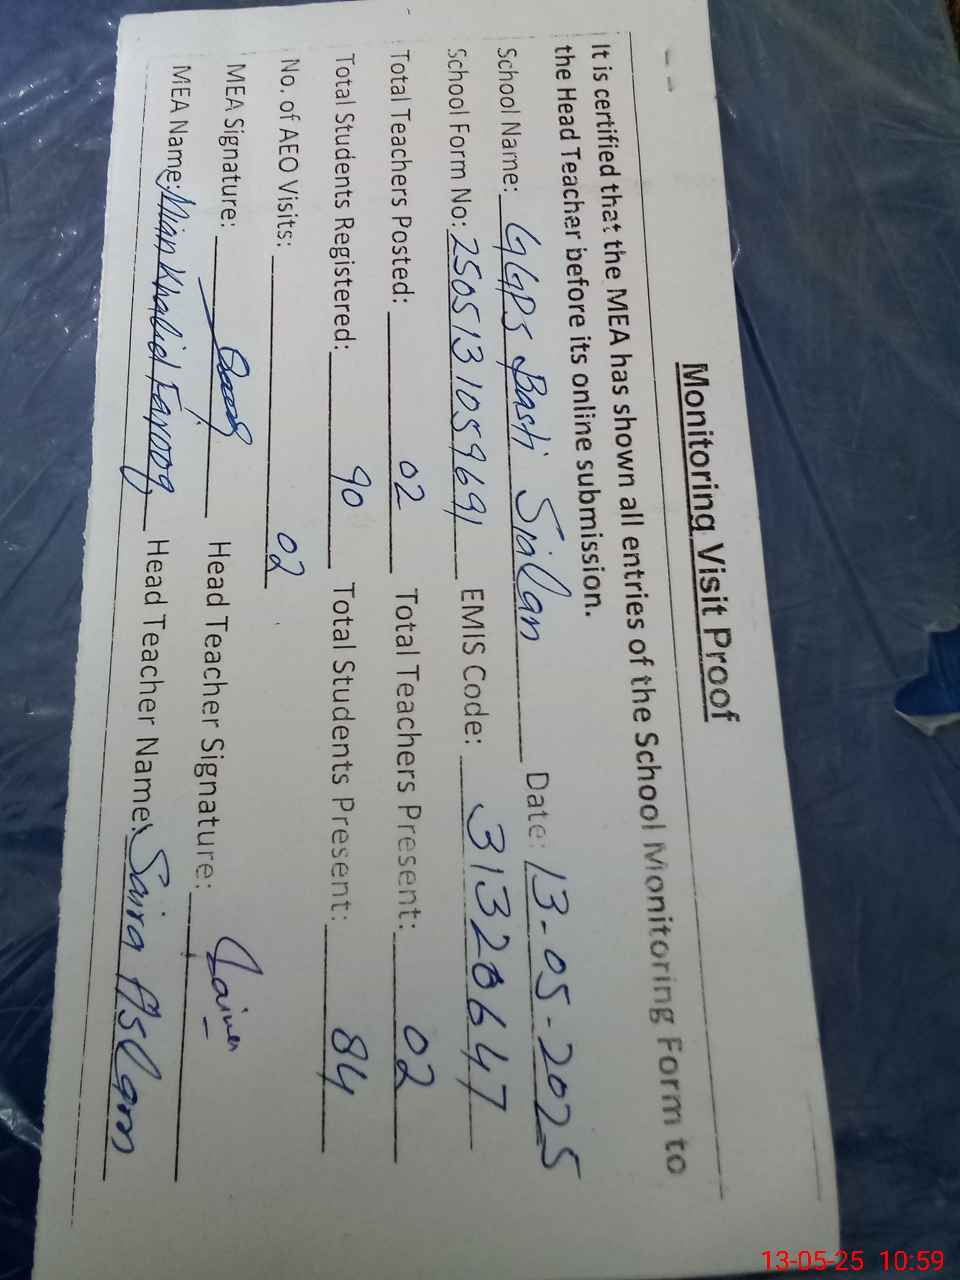 Monitoring Visit Proof
It is certified that the MEA has shown all entries of the School Monitoring Form to
the Head Teacher before its online submission.
School Name: GGPS Basti Sialan Date: 13-05-2025
School Form No: 2505131059691 EMIS Code: 31320647
Total Teachers Posted: 02 Total Teachers Present: 02
Total Students Registered: 90 Total Students Present: 84
No. of AEO Visits: 02
MEA Signature: Head Teacher Signature:
MEA Name: Mian Khalid Farooq Head Teacher Name: Saira Aslam
13-05-25 10:59